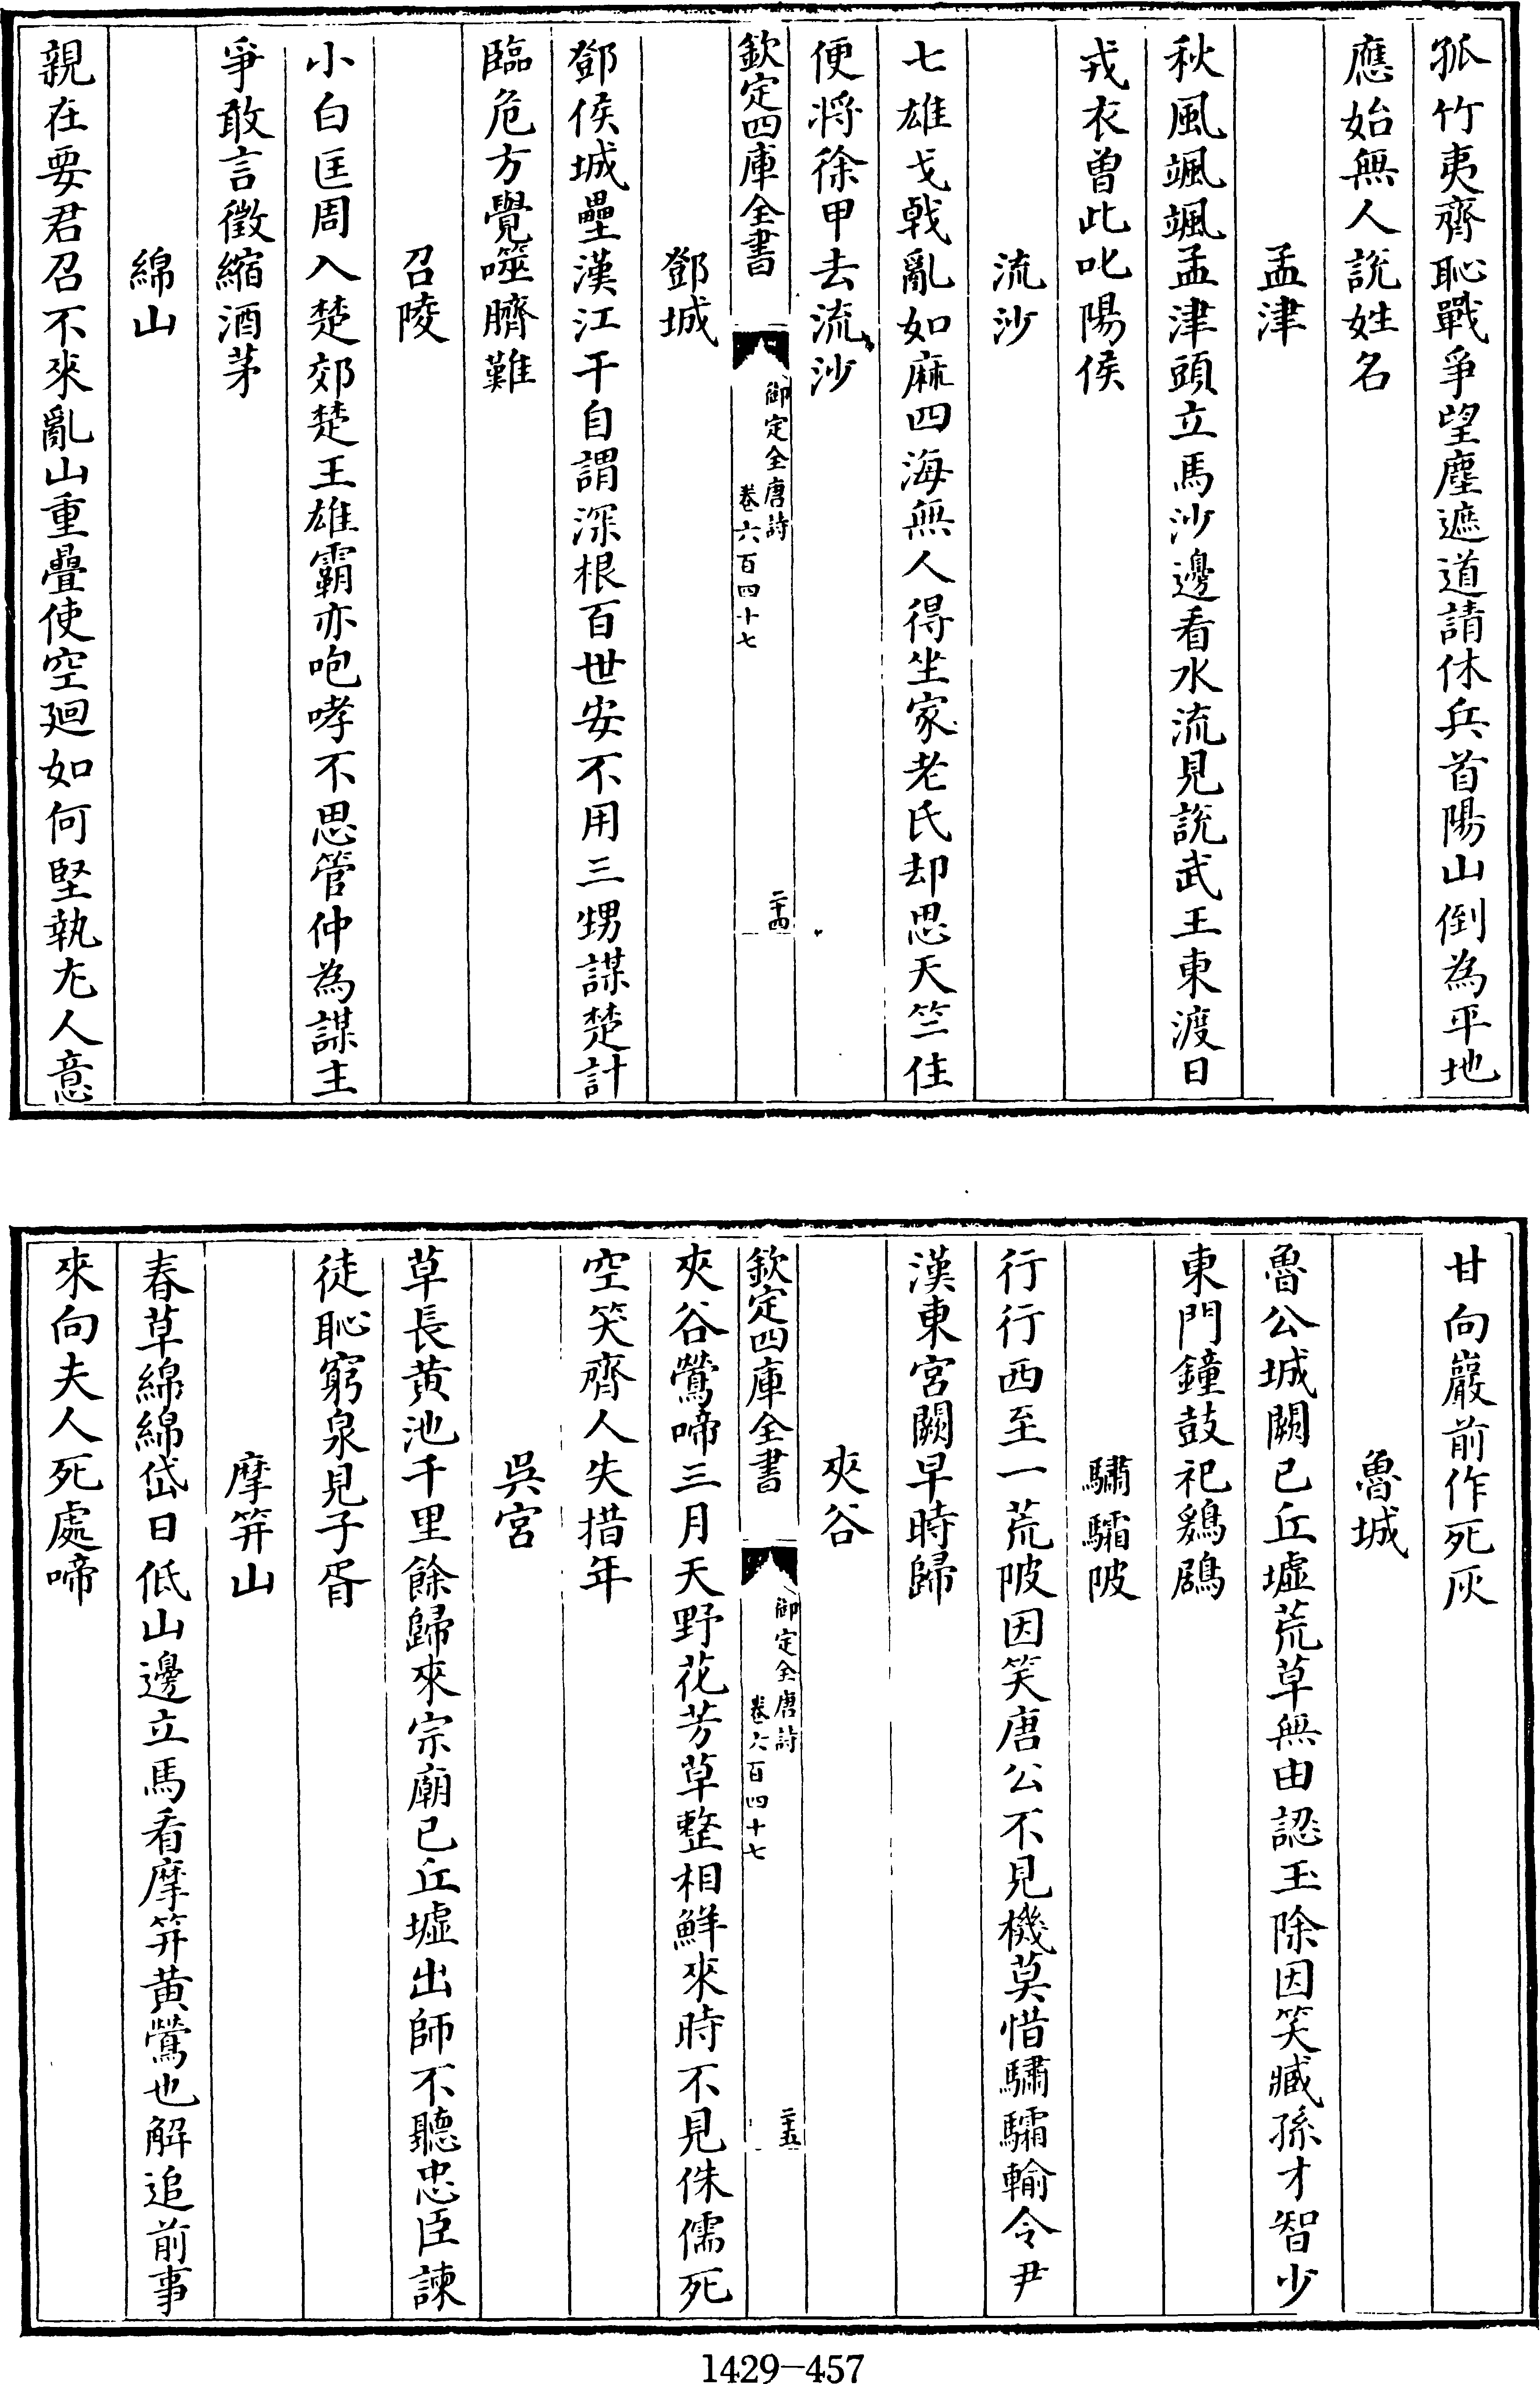 孤竹夷齊恥戰爭望塵遮道請休兵首陽山倒為平地
應始無人說姓名
孟津
秋風颯颯孟津頭立馬沙邊看水流見說武王東渡日
戎衣曾此叱陽侯
流沙
七雄戈戟亂如麻四海無人得坐家老氏却思天竺住
便將徐甲去流沙
欽定四庫全書
御定全唐詩
卷六百四十七
二十四
鄧城
鄧侯城壘漢江干自謂深根百世安不用三甥謀楚計
臨危方覺噬臍難
召陵
小白匡周入楚郊楚王雄霸亦咆哮不思管仲為謀主
爭敢言徵縮酒茅
綿山
親在要君召不來亂山重疊使空廻如何堅執尤人意
甘向巖前作死灰
魯城
魯公城闕已丘墟荒草無由認玉除因笑臧孫才智少
東門鐘鼓祀鶢鶋
驌驦陂
行行西至一荒陂因笑唐公不見機莫惜驌驦輸令尹
漢東宮闕早時歸
夾谷
欽定四庫全書
御定全唐詩
卷六百四十七
二十五
夾谷鶯啼三月天野花芳草整相鮮來時不見侏儒死
空笑齊人失措年
吳宮
草長黄池千里餘歸來宗廟已丘墟出師不聽忠臣諫
徒恥窮泉見子胥
摩笄山
春草綿綿岱日低山邊立馬看摩笄黄鶯也解追前事
來向夫人死處啼
1429-457